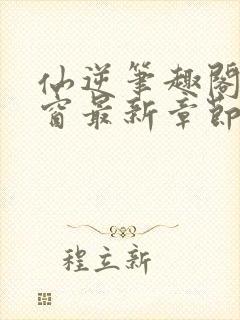 仙逆笔趣阁
窗最新章节
程立新